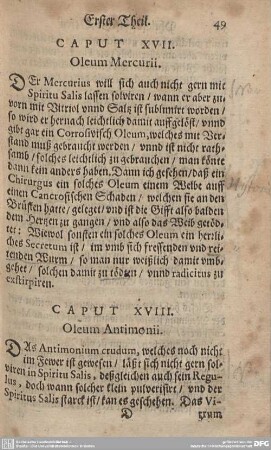 Erster Theil. 49
CAPUT XVII.
Oleum Mercurii.
DEr Mercurius will sich auch nicht gern mit
Spiritu Salis lassen solviren / wann er aber zu-
vorn mit Vitriol vnnd Saltz ist sublimirt worden /
so wird er hernach leichtlich damit auffgelöst / vnnd
gibt gar ein Corrosivisch Oleum, welches mit Ver-
stand muß gebraucht werden / vnnd ist nicht rath-
samb / solches leichtlich zu gebrauchen / man könte
dann kein anders haben. Dann ich gesehen / daß ein
Chirurgus ein solches Oleum einem Weibe auff
einen Cancrosischen Schaden / welchen sie an den
Brüsten hatte / geleget / vnd ist die Gifft also balden
dem Hertzen zu gangen / vnd also das Weib getöd-
tet: Wiewol sonsten ein solches Oleum ein herrli-
ches Secretum ist / im vmb sich fressenden vnd rei-
tenden Wurm / so man nur weißlich damit vmb-
gehet / solchen damit zu tödten / vnnd radicitus zu
exstirpiren.
CAPUT XVIII.
Oleum Antimonii.
DAs Antimonium crudum, welches noch nicht
im Fewer ist gewesen / läßt sich nicht gern sol-
viren in Spiritu Salis, deßgleichen auch sein Regu-
lus, doch wann solcher klein pulverisirt / vnd der
Spiritus Salis starck ist / kan es geschehen. Das Vi-
D trum